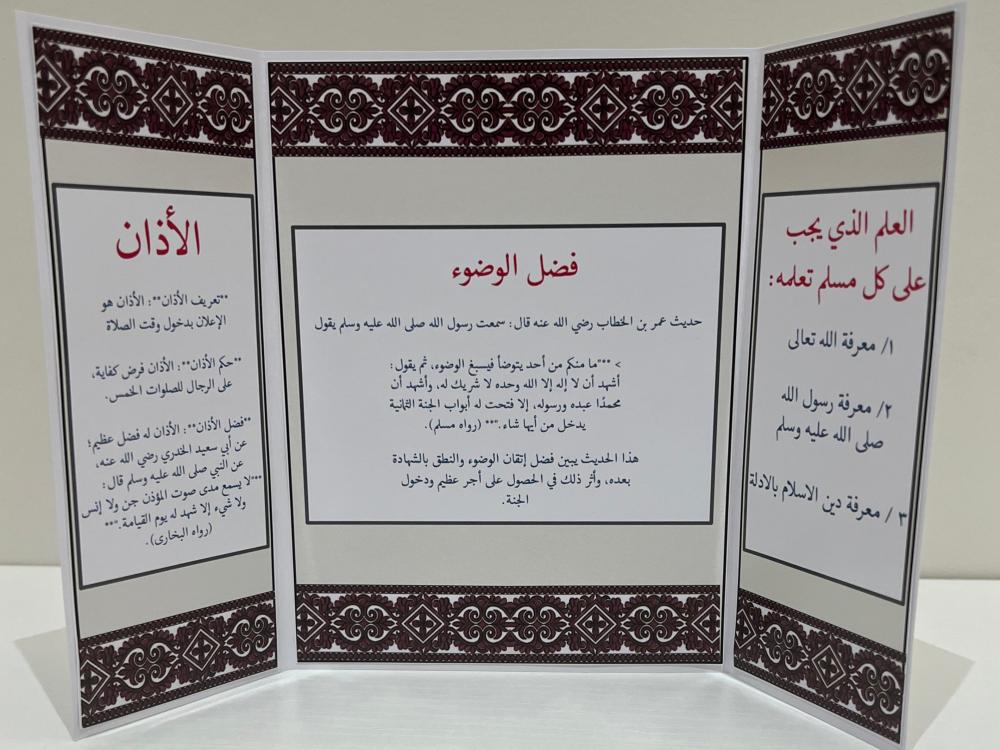 العلم الذي يجب
على كل مسلم تعلمه:
١/ معرفة الله تعالى
٢/ معرفة رسول الله
صلى الله عليه وسلم
٣ / معرفة دين الاسلام بالادلة
فضل الوضوء
حديث عمر بن الخطاب رضي الله عنه قال: سمعت رسول الله صلى الله عليه وسلم يقول
> **"ما منكم من أحد يتوضأ فيسبغ الوضوء، ثم يقول:
أشهد أن لا إله إلا الله وحده لا شريك له، وأشهد أن
محمدًا عبده ورسوله، إلا فتحت له أبواب الجنة الثمانية
يدخل من أيها شاء."** (رواه مسلم).
هذا الحديث يبين فضل إتقان الوضوء والنطق بالشهادة
بعده، وأثر ذلك في الحصول على أجر عظيم ودخول
الجنة.
الأذان
**تعريف الأذان**: الأذان هو
الإعلان بدخول وقت الصلاة
**حكم الأذان**: الأذان فرض كفاية،
على الرجال للصلوات الخمس.
**فضل الأذان**: الأذان له فضل عظيم؛
عن أبي سعيد الخدري رضي الله عنه،
عن النبي صلى الله عليه وسلم قال:
**"لا يسمع مدى صوت المؤذن جن ولا إنس
ولا شيء إلا شهد له يوم القيامة."**
(رواه البخاري).